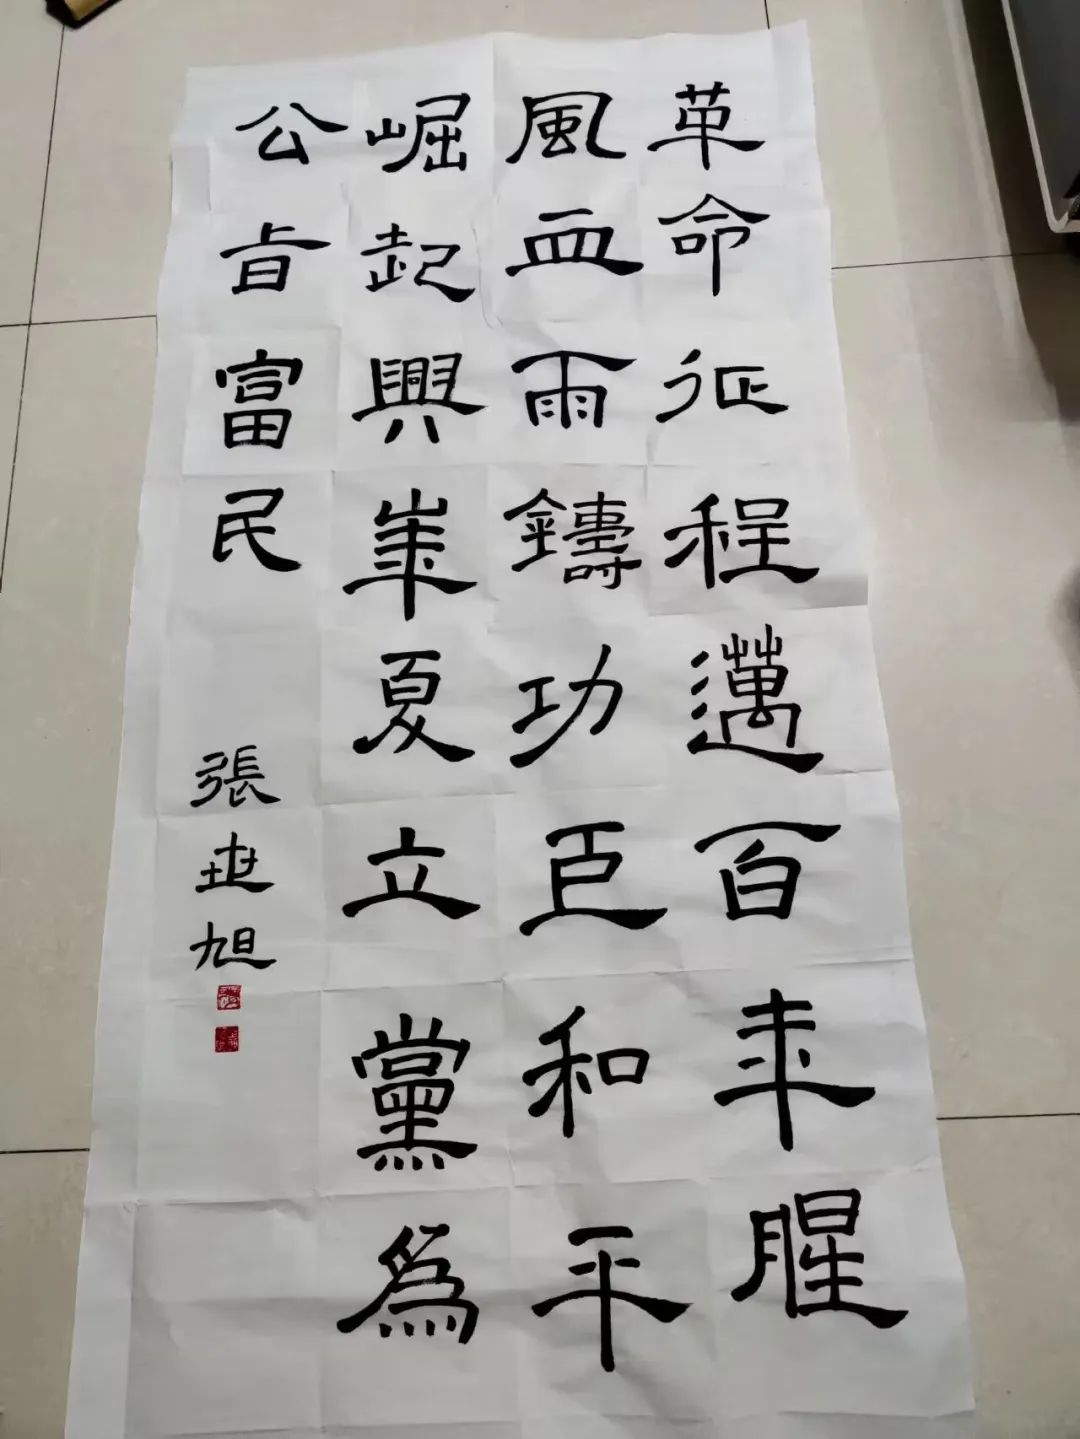 革命征程邁百年腥
風血雨鑄功臣和平
崛起興華夏立黨爲
公旨富民
張旭